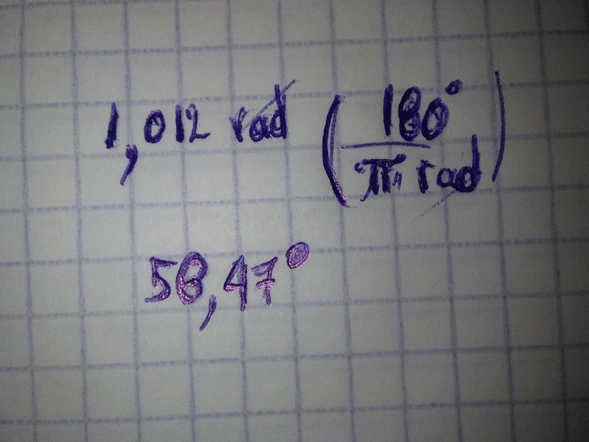 1,012 rad (180° / π rad)
58,47°